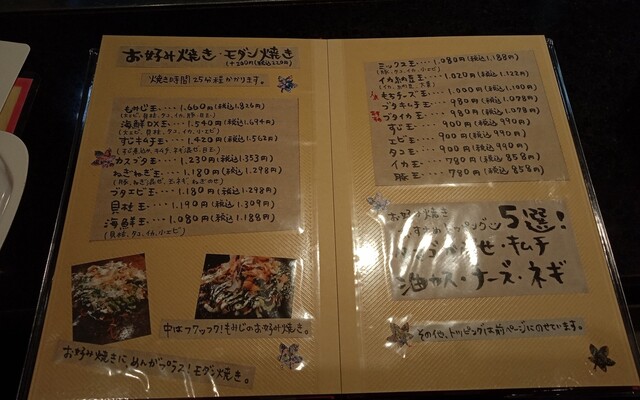 お好み焼き・モダン焼き
焼き時間25分程かかります。
もみじ王・・・・1,660円(税込1,826円)
海鮮DX王・・・・1,540円(税込1,694円)
すじキムチ王・・・・1,420円(税込1,562円)
カスブタ王・・・・1,230円(税込1,353円)
ねぎねぎ王・・・・1,180円(税込1,298円)
ブタエビ王・・・・1,180円(税込1,298円)
貝柱王・・・・1,190円(税込1,309円)
海鮮王・・・・1,080円(税込1,188円)
(貝柱、タコ、イカ、小エビ)
中はフワッフワ!もみじのお好み焼き。
お好み焼きにめんがプラス!モダン焼き。
ミックス王・・・・1,080円(税込1,188円)
(豚、タコ、イカ、小エビ)
イカ納豆王・・・・1,020円(税込1,122円)
もちチーズ王・・・・1,000円(税込1,100円)
ブタキムチ王・・・・980円(税込1,078円)
ブタイカ王・・・・980円(税込1,078円)
すじ王・・・・900円(税込990円)
エビ王・・・・900円(税込990円)
タコ王・・・・900円(税込990円)
イカ王・・・・780円(税込858円)
豚王・・・・780円(税込858円)
お好み焼き
トッピング 5選!
キムチ
油カス・チーズ・ネギ
その他、トッピングは前ページにのせています。